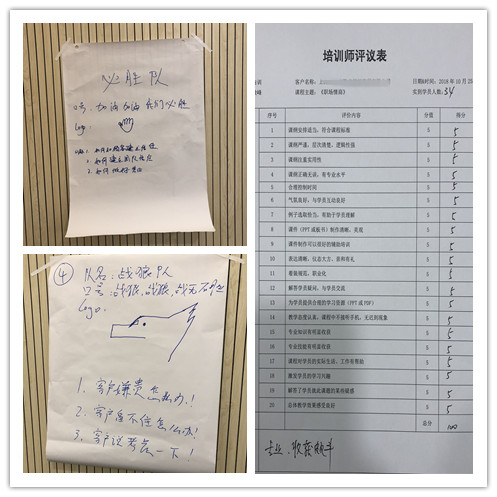 必胜队
口号：加油加油我们必胜
logo：
1. 如何和顾客建立信任
2. 如何建立团队信任
3. 如何做好
④ 队名：战狼队
口号：战狼、战狼、战无不胜
logo：
1、客户嫌贵怎么办！
2、客户留不住怎么办！
3、客户说考虑一下！
培训师评议表
客户名称：
日期&时间：2018年10月25
课程主题：《职场情商》
实到学员人数：34
序号 评价内容 分值 得分
1 课程安排适当，符合课程标准 5 5
2 课程严谨、层次清楚、逻辑性强 5 5
3 课程注重实用性 5 5
4 课程正确无误，有专业水平 5 5
5 合理控制时间 5 5
6 气氛良好，与学员互动良好 5 5
7 例子选取恰当，有助于学员理解 5 5
8 课件（PPT或板书）制作清晰、美观 5 5
9 课件制作可以很好的辅助培训 5 5
10 表达清晰、仪态大方、亲和有礼 5 5
11 着装规范、职业化 5 5
12 解答学员疑问，与学员交流 5 5
13 为学员提供合理的学习资源（PPT或PDF） 5 5
14 教学态度认真，课程中不接听手机、无迟到现象 5 5
15 专业知识有明显收获 5 5
16 专业技能有明显收获 5 5
17 课程对学员的实际生活、工作有帮助 5 5
18 激发学员的学习兴趣 5 5
19 解答了学员就此课题的某些疑惑 5 5
20 总体教学效果感受良好 5 5
总分 100
专业、收获颇丰